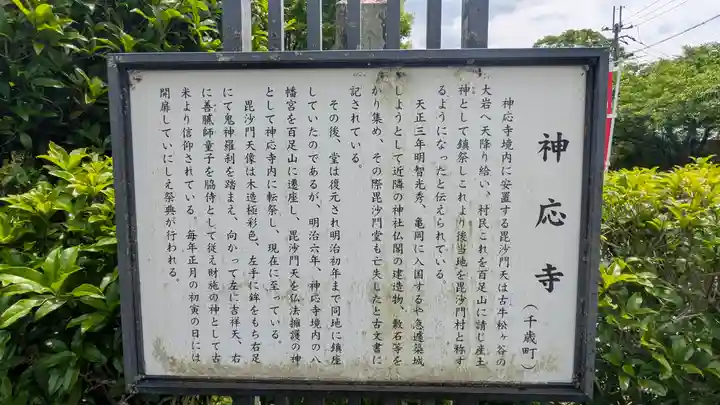 神応寺
(千歳町)
神応寺境内に安置する毘沙門天は古牛松ヶ谷の
大岩へ天降り給い、村民これを百足山に請じ産土
神として鎮祭しこれより後当地を毘沙門村と称す
るようになったと伝えられている。
天正三年明智光秀、亀岡に入国するや急遽築城
しようとして近隣の神社仏閣の建造物、敷石等を
かり集め、その際毘沙門堂も亡失したと古文書に
記されている。
その後、堂は復元され明治初年まで同地に鎮座
していたのであるが、明治六年、神応寺境内の八
幡宮を百足山に遷座し、毘沙門天を仏法擁護の神
として神応寺内に転祭し、現在に至っている。
毘沙門天像は木造極彩色、左手に鉾をもち右足
にて鬼神羅刹を踏まえ、向かって左に吉祥天、右
に善膩師童子を脇侍として従え財施の神として古
来より信仰されている。毎年正月の初寅の日には
開扉していにしえ祭典が行われる。